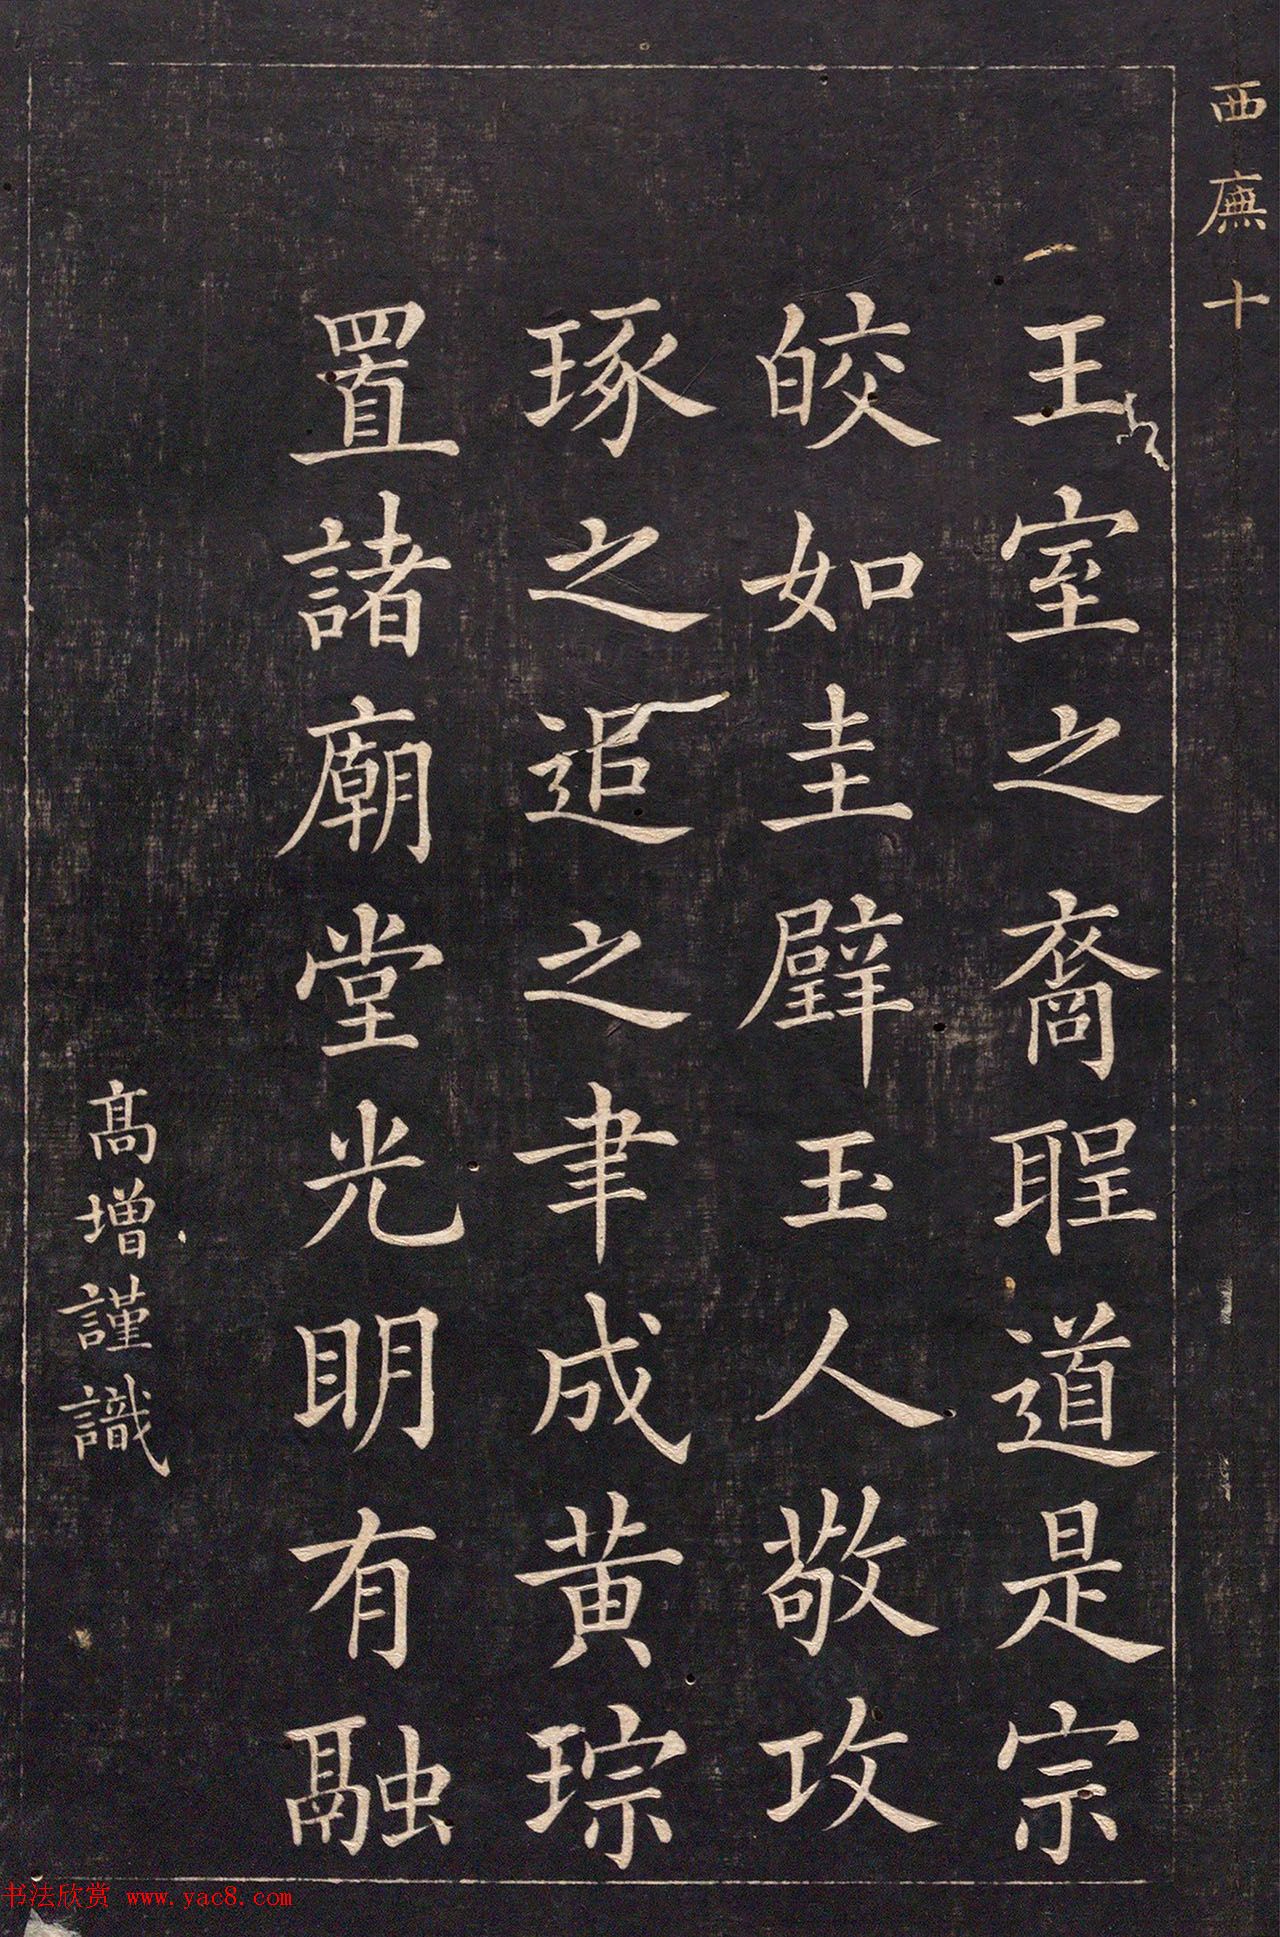 西廡十
王室之裔聖道是宗
皎如圭璧玉人敬攻
琢之追之聿成黃琮
置諸廟堂光明有融
高增謹識
书法欣赏 www.yac8.com